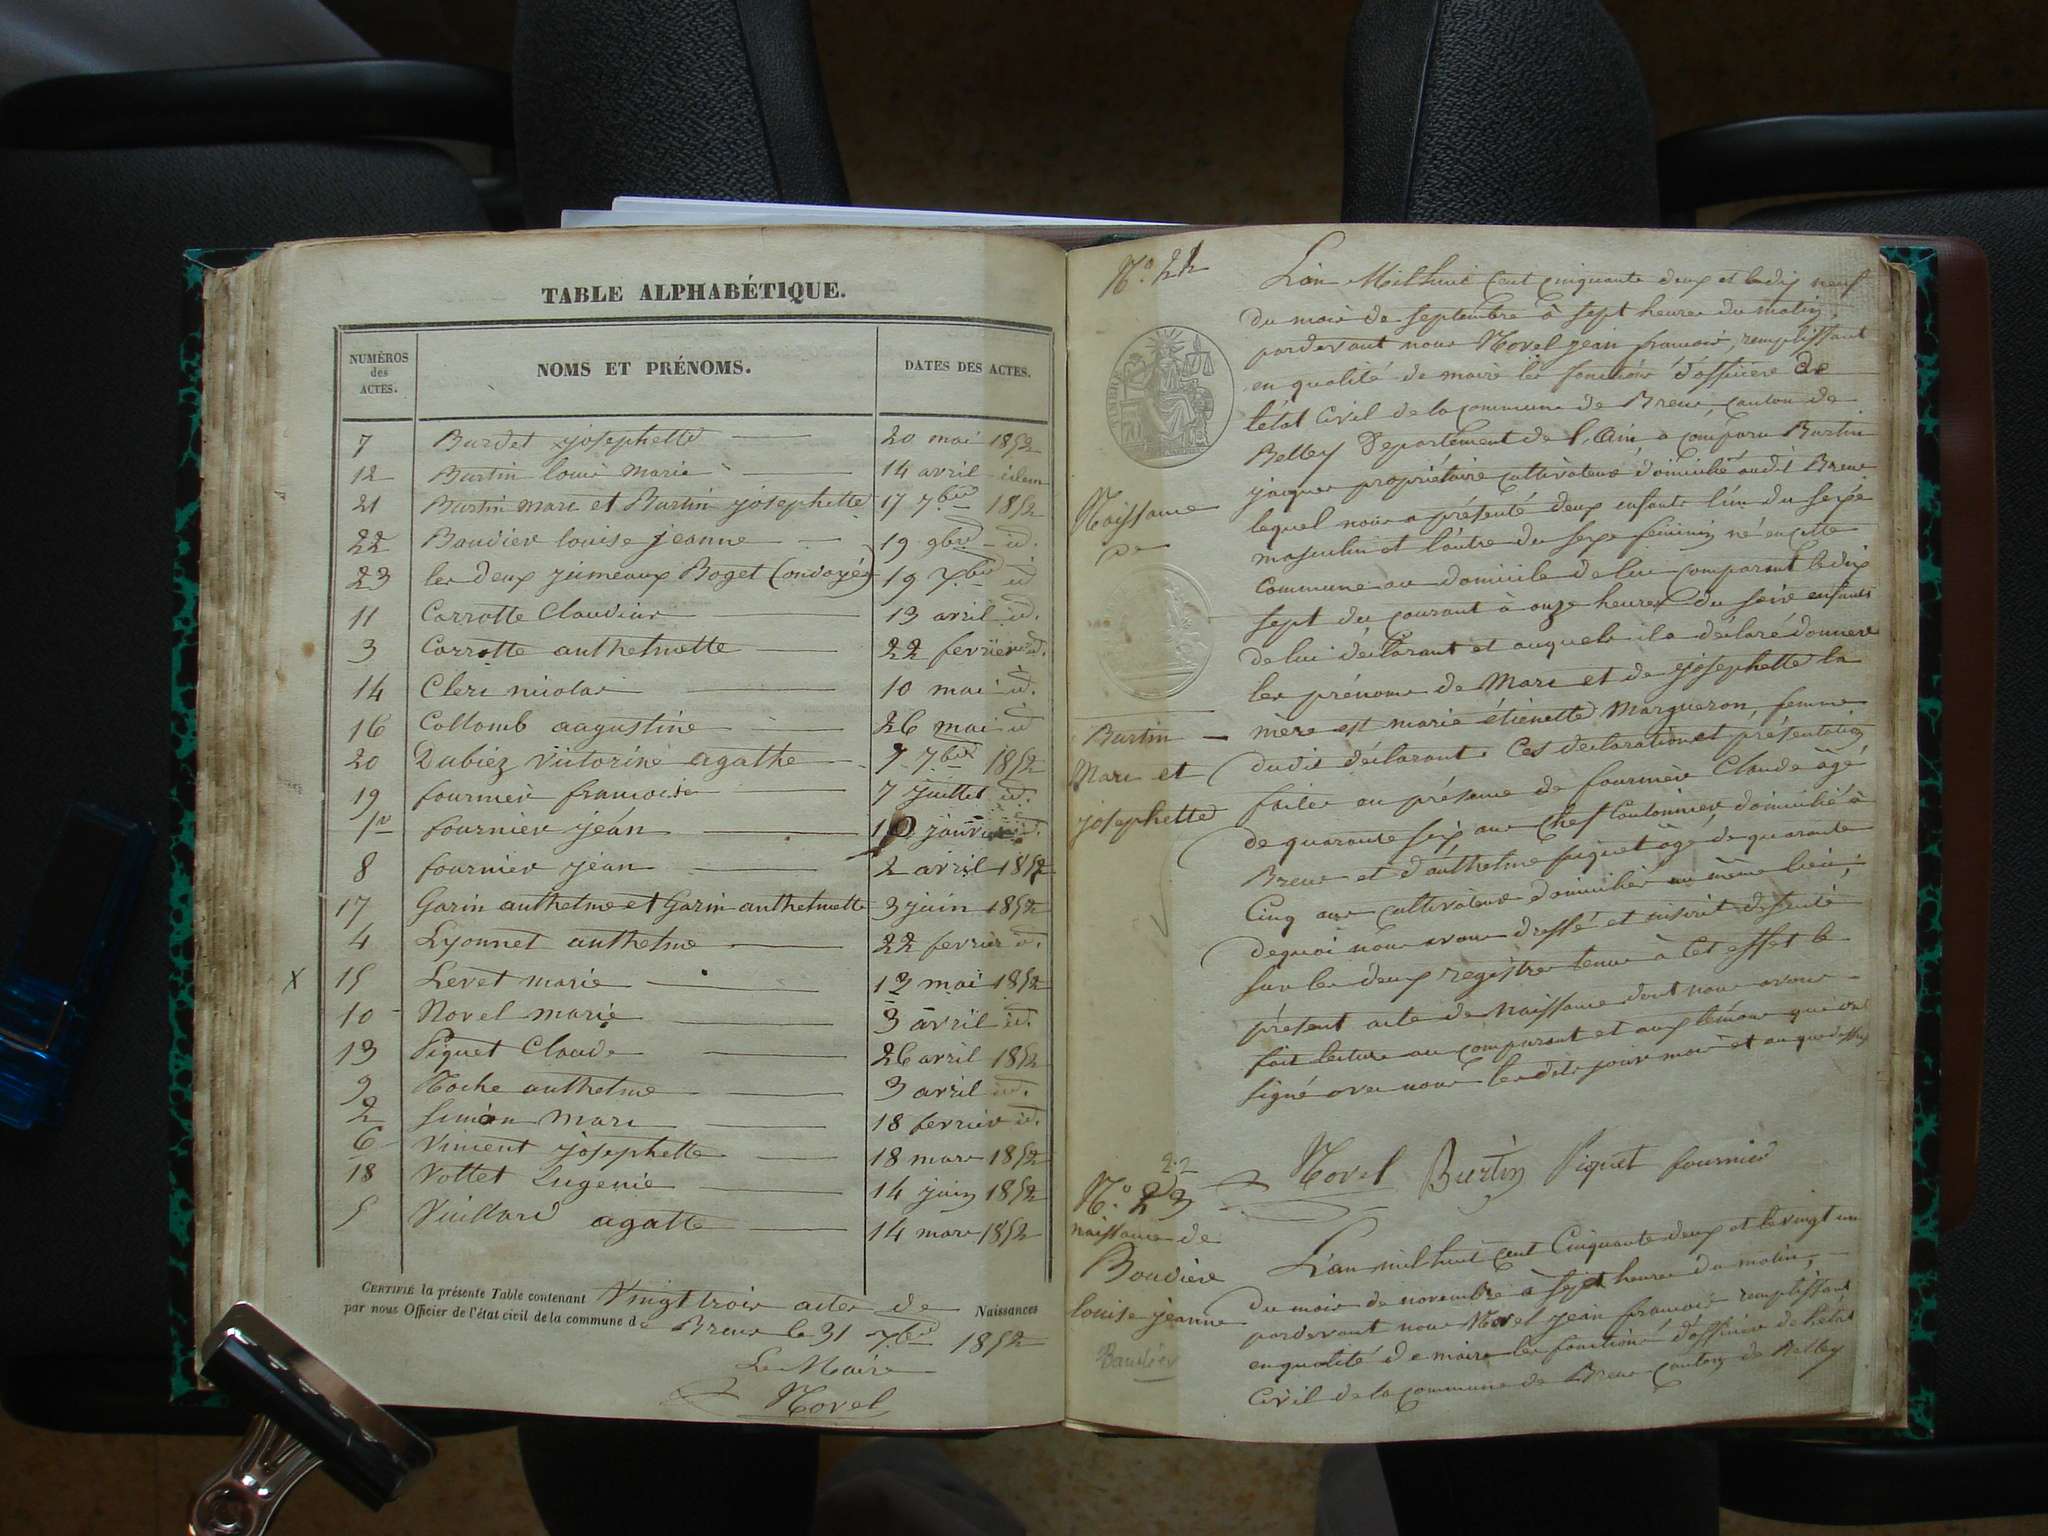 TABLE ALPHABÉTIQUE.
NUMÉROS des ACTES.
NOMS ET PRÉNOMS.
DATES DES ACTES.
7 Burdet josephette 20 mai 1852
12 Burtin louis marie 14 avril idem
21 Burtin marc et Burtin josephette 17 7bre 1852
22 Baudier louise jeanne 19 9bre id.
23 les deux jumeaux Boget (ondoyés) 19 Xbre id
11 Carrotte Claudine 13 avril id.
3 Carrotte anthelmette 22 fevrier id.
14 Clerc nicolas 10 mai id.
16 Collomb augustine 26 mai id
20 Dubiez victorine agathe 9 7bre 1852
19 fournier francoise 7 juillet id.
1er fournier jéan 10 janvier id.
8 fournier jéan 2 avril 1852
17 Garin anthelme et Garin anthelmette 3 juin 1852
4 Lyonnet anthelme 22 fevrier id.
X 15 Levet marie 13 mai 1852
10 Novel marie 3 avril id.
13 Piguet Claude 26 avril 1852
9 Roche anthelme 3 avril id.
2 Simon marc 18 fevrier id.
6 Vincent josephette 18 mars 1852
18 Vottet Eugenie 14 juin 1852
5 Vuillard agatte 14 mars 1852
CERTIFIÉ la présente Table contenant Vingt trois actes de Naissances
par nous Officier de l'état civil de la commune de Brens le 31 Xbre 1852
Le Maire
Novel
N.° 21
L'an Mil huit cent cinquante deux et le dix neuf
du mois de septembre à sept heures du matin,
pardevant nous Novel jean francois, remplissant
en qualité de maire les fonctions d'officier de
l'état civil de la commune de Brens canton de
Belley Departement de l'Ain a comparu Burtin
jacques propriétaire cultivateur domicilié audit Brens
Naissance
lequel nous a présenté deux enfants l'un du sexe
de
masculin et l'autre du sexe féminin né en cette
commune au domicile de lui comparant le dix
sept du courant à onze heures du soir enfants
de lui déclarant et auquels il a déclaré donner
les prénoms de Marc et de josephette la
Burtin
mère est marie étiénette Margueron, femme
Marc et
dudit déclarant. Ces declaration et présentation
josephette
faites en présence de fournier Claude âgé
de quarante six ans chef Cantonnier, domicilié à
Brens et d'anthelme piguet âgé de quarante
Cinq ans cultivateur domicilié au même lieu;
dequoi nous avons dressé et inscrit de suite
sur les deux registres tenus à cet effet le
présent acte de naissance dont nous avons
fait lecture au comparant et aux témoins qui ont
signé avec nous lesdits jour mois et an que dessus
Novel Burtin Piguet fournier
22
N.° 23
naissance de
Boudière
louise jeanne
Baudier
L'an mil huit cent Cinquante deux et le vingt un
du mois de novembre à sept heures du matin,
pardevant nous Novel jean francois remplissant
en qualité de maire les fonctions d'officier de l'état
civil de la commune de Brens canton de Belley